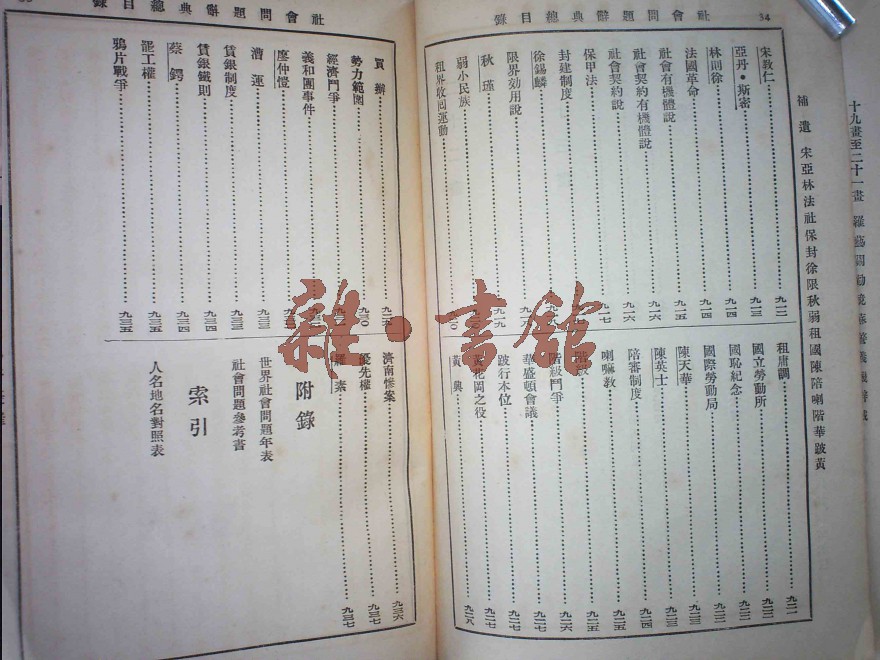 社會問題辭典總目錄
34
補遺 宋亞林法社保封徐限秋弱租國陳陪喇階華跛黃
宋教仁 九一二
亞丹・斯密 九一三
林則徐 九一四
法國革命 九一四
社會有機體說 九一五
社會契約有機體說 九一六
社會契約說 九一六
保甲法 九一七
封建制度
徐錫麟
限界効用說
秋瑾
弱小民族
租界收回運動
租庸調 九二一
國立勞動所 九二二
國恥紀念 九二二
國際勞動局
陳天華 九二三
陳英士 九二三
陪審制度 九二四
喇嘛教 九二五
階級 九二五
階級鬥爭 九二六
華盛頓會議 九二七
跛行本位 九二七
黃花岡之役 九二七
黃興 九二八
社會問題辭典總目錄
買辦 九二九
勢力範圍
經濟鬥爭
義和團事件
廖仲愷
漕運 九三三
賃銀制度 九三三
賃銀鐵則 九三四
蔡鍔 九三四
罷工權 九三五
鴉片戰爭 九三五
濟南慘案 九三六
優先權 九三七
羅素 九三七
附錄
世界社會問題年表
社會問題參考書
索引
人名地名對照表
十九畫至二十一畫
雜・書館